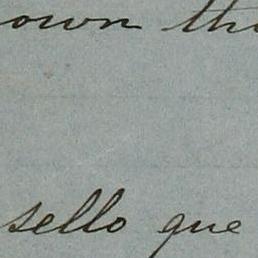 own the
sello que